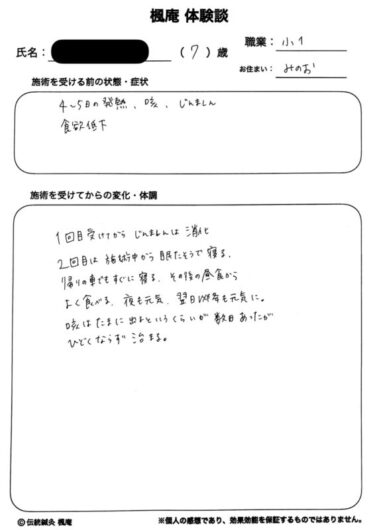 楓庵 体験談
氏名： （ 7 ）歳
職業： 小1
お住まい： みのお
施術を受ける前の状態・症状
4〜5日の発熱、咳、じんましん
食欲低下
施術を受けてからの変化・体調
1回目受けてから じんましんは 消化
2回目は 施術中から 眠たそうで 寝る。
帰りの車でもすぐに寝る。その後の昼食から
よく食べる。夜も元気、翌日以降も元気に。
咳は たまに 出るというくらいが 数日 あったが
ひどくならず 治まる。
© 伝統鍼灸 楓庵
※個人の感想であり、効果効能を保証するものではありません。